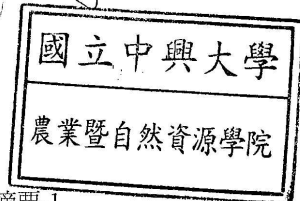 國立中興大學
農業暨自然資源學院
摘要 1